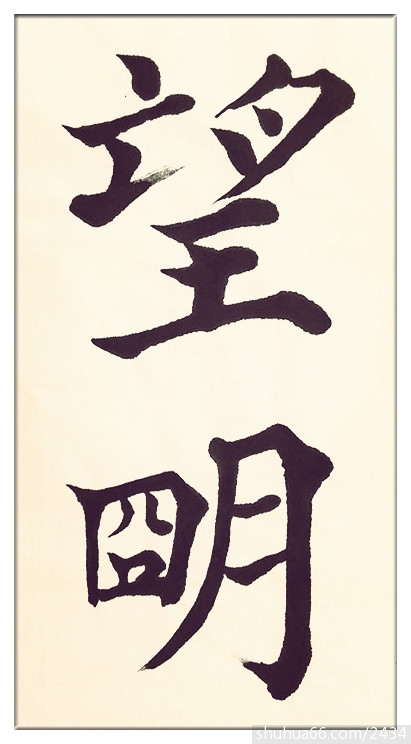 望朙
shuhua66.com/2434